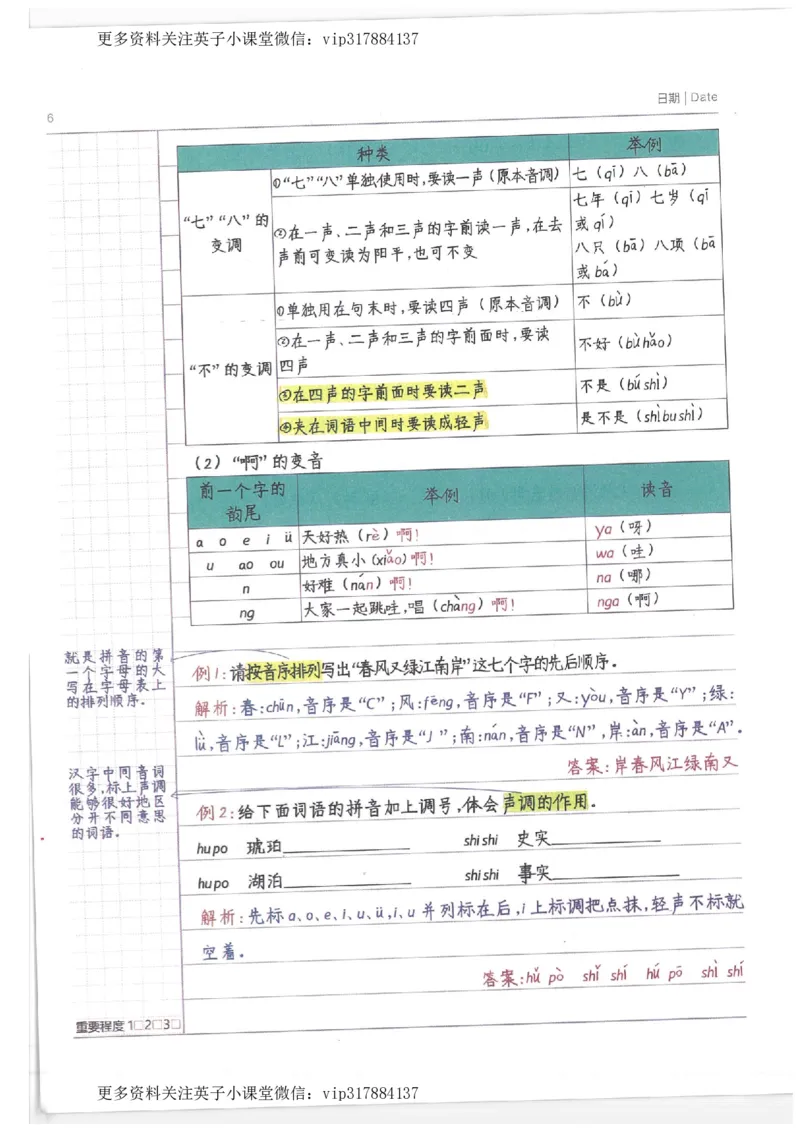 更多资料关注英子小课堂微信：vip317884137
日期 | Date
6
种类 举例
“七”“八”的变调
①“七”“八”单独使用时,要读一声(原本音调) 七（qī）八（bā）
②在一声、二声和三声的字前读一声,在去
声前可变读为阳平,也可不变
七年（qī）七岁（qī
或qí）
八尺（bā）八项（bā
或bá）
“不”的变调
①单独用在句末时,要读四声（原本音调） 不（bù）
②在一声、二声和三声的字前面时,要读
四声
不好（bùhǎo）
③在四声的字前面时要读二声 不是（búshì）
④夹在词语中间时要读成轻声 是不是（shìbushì）
（2）“啊”的变音
前一个字的
韵尾
举例 读音
a o e i ü 天好热（rè）啊! ya（呀）
u ao ou 地方真小(xiǎo)啊! wa（哇）
n 好难（nán）啊! na（哪）
ng 大家一起跳哇,唱（chàng）啊! nga（啊）
就是拼音的第
一个字母的大
写在字母表上
的排列顺序。
例1:请按音序排列写出“春风又绿江南岸”这七个字的先后顺序。
解析:春:chūn,音序是“C”;风:fēng,音序是“F”;又:yòu,音序是“Y”;绿:
lǜ,音序是“L”;江:jiāng,音序是“J”;南:nán,音序是“N”,岸:àn,音序是“A”.
答案:岸春风江绿南又
汉字中同音词
很多,标上声调
能够很好地区
分开不同意思
的词语。
例2:给下面词语的拼音加上调号,体会声调的作用.
hupo 琥珀 shishi 史实
hupo 湖泊 shishi 事实
解析:先标a、o、e、i、u、ü,i、u并列标在后,i上标调把点抹,轻声不标就
空着.
答案:hǔ pò shǐ shí hú pō shì shí
重要程度 1□2□3□
更多资料关注英子小课堂微信：vip317884137